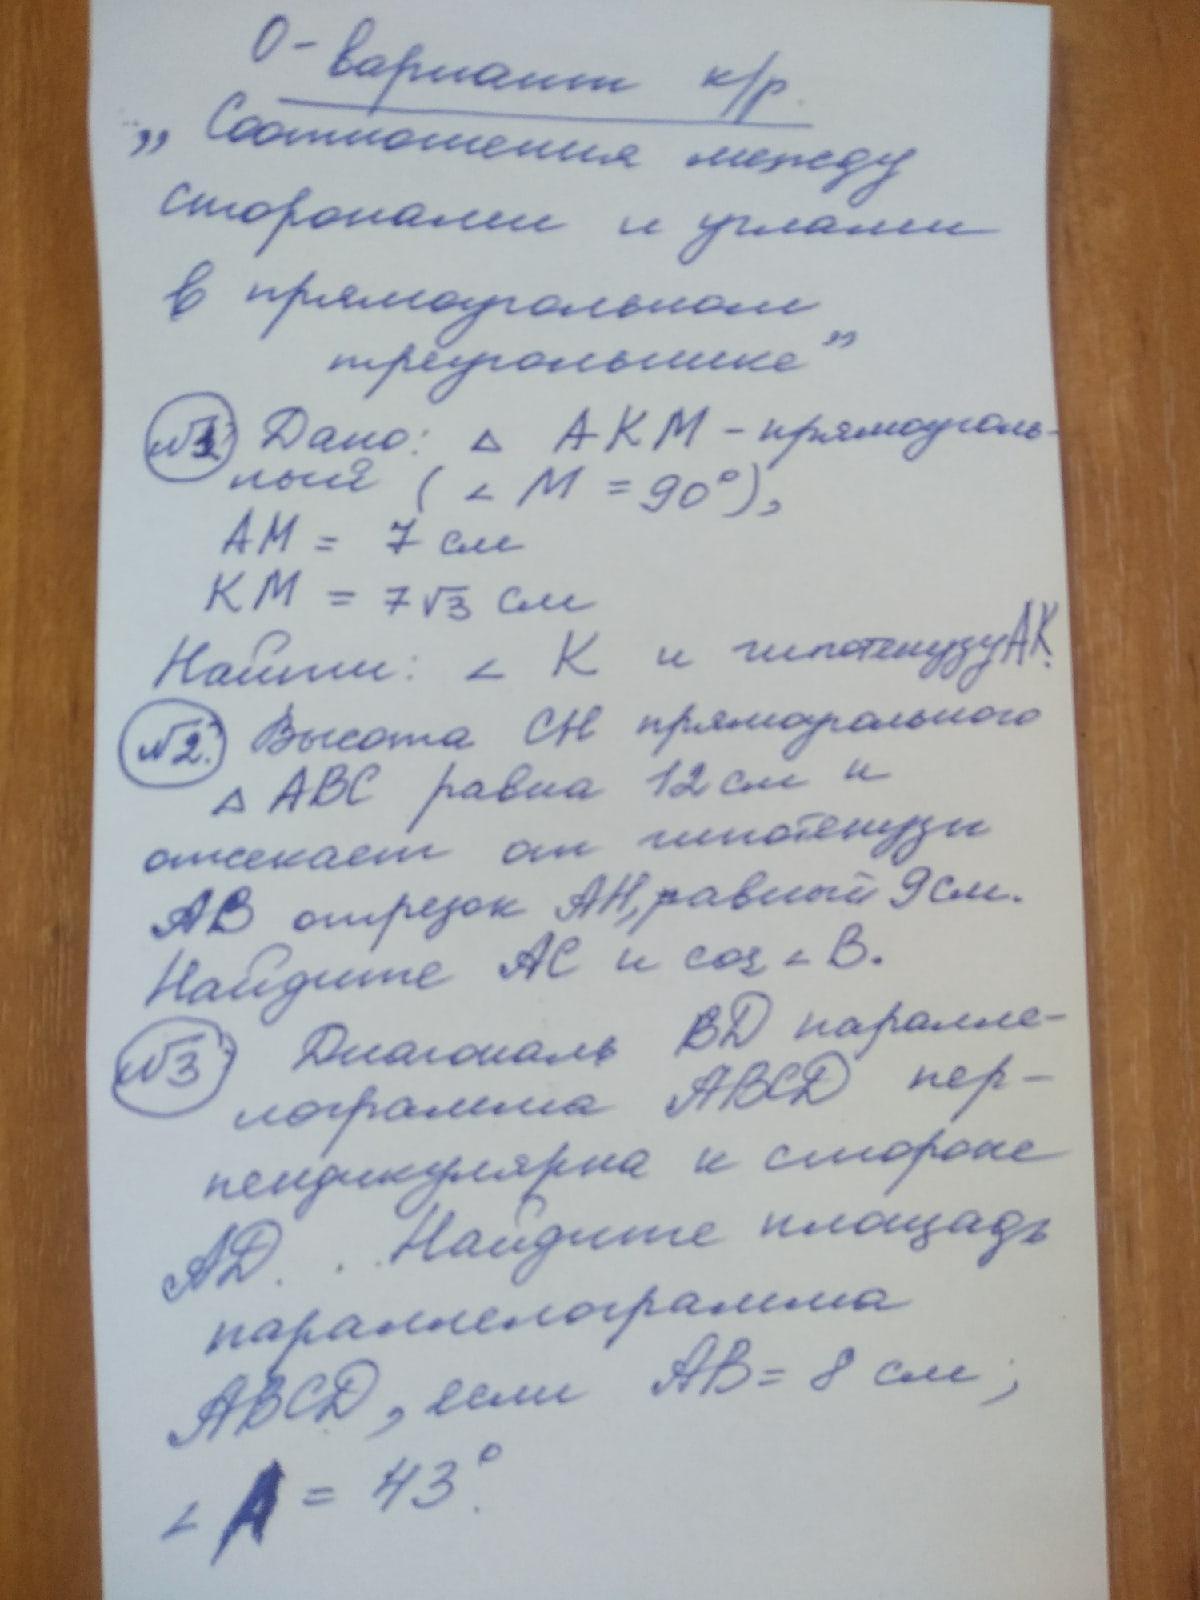 0-вариант к/р.
„Соотношения между
сторонами и углами
в прямоугольном
треугольнике”
№1. Дано: △ АКМ - прямоуголь-
ный (∠ М = 90°),
АМ = 7 см
КМ = 7√3 см
Найти: ∠ К и гипотенузу АК.
№2. Высота СН прямоугольного
△ АВС равна 12 см и
отсекает от гипотенузы
АВ отрезок АН, равный 9 см.
Найдите АС и cos ∠ В.
№3. Диагональ BD паралле-
лограмма ABCD пер-
пендикулярна к стороне
AD. Найдите площадь
параллелограмма
ABCD, если AB = 8 см;
∠ A = 43°.